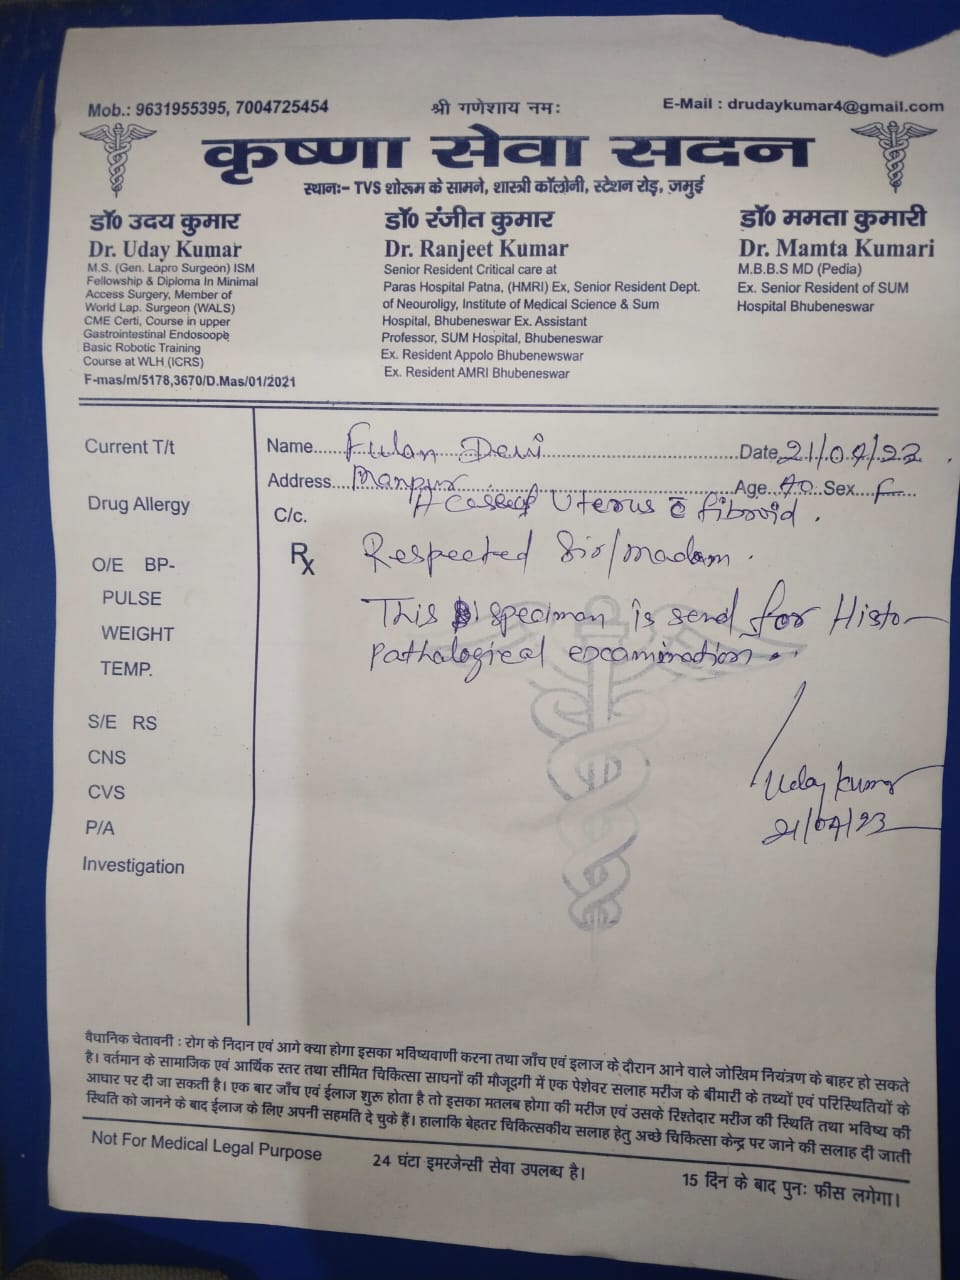 Mob.: 9631955395, 7004725454
श्री गणेशाय नमः
E-Mail : drudaykumar4@gmail.com
कृष्णा सेवा सदन
स्थानः- TVS शोरूम के सामने, शास्त्री कॉलोनी, स्टेशन रोड़, जमुई
डॉ० उदय कुमार
Dr. Uday Kumar
M.S. (Gen. Lapro Surgeon) ISM
Fellowship & Diploma In Minimal
Access Surgery, Member of
World Lap. Surgeon (WALS)
CME Certi, Course in upper
Gastrointestinal Endosoope
Basic Robotic Training
Course at WLH (ICRS)
F-mas/m/5178,3670/D.Mas/01/2021
डॉ० रंजीत कुमार
Dr. Ranjeet Kumar
Senior Resident Critical care at
Paras Hospital Patna, (HMRI) Ex, Senior Resident Dept.
of Neouroligy, Institute of Medical Science & Sum
Hospital, Bhubeneswar Ex. Assistant
Professor, SUM Hospital, Bhubeneswar
Ex. Resident Appolo Bhubenewswar
Ex. Resident AMRI Bhubeneswar
डॉ० ममता कुमारी
Dr. Mamta Kumari
M.B.B.S MD (Pedia)
Ex. Senior Resident of SUM
Hospital Bhubeneswar
Current T/t
Drug Allergy
O/E BP-
PULSE
WEIGHT
TEMP.
S/E RS
CNS
CVS
P/A
Investigation
Name Fulan Devi Date 21/04/23
Address Manpur Age 40 Sex F
C/c. A case of Uterus c̄ fibroid.
Rx Respected Sir/madam.
This specimen is send for Histo-
Pathalogical excamination.
Uday Kumar
21/04/23
वैधानिक चेतावनी : रोग के निदान एवं आगे क्या होगा इसका भविष्यवाणी करना तथा जाँच एवं इलाज के दौरान आने वाले जोखिम नियंत्रण के बाहर हो सकते
है। वर्तमान के सामाजिक एवं आर्थिक स्तर तथा सीमित चिकित्सा साधनों की मौजूदगी में एक पेशेवर सलाह मरीज के बीमारी के तथ्यों एवं परिस्थितियों के
आधार पर दी जा सकती है। एक बार जाँच एवं ईलाज शुरू होता है तो इसका मतलब होगा की मरीज एवं उसके रिश्तेदार मरीज की स्थिति तथा भविष्य की
स्थिति को जानने के बाद ईलाज के लिए अपनी सहमति दे चुके हैं। हालाकि बेहतर चिकित्सकीय सलाह हेतु अच्छे चिकित्सा केन्द्र पर जाने की सलाह दी जाती
Not For Medical Legal Purpose
24 घंटा इमरजेन्सी सेवा उपलब्ध है।
15 दिन के बाद पुनः फीस लगेगा।